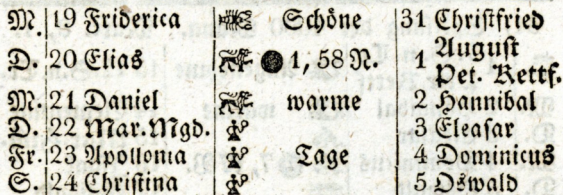 M. 19 Friderica Schöne 31 Christfried
D. 20 Elias 1, 58 N. 1 August Pet. Kettf.
M. 21 Daniel warme 2 Hannibal
D. 22 Mar. Mgd. 3 Eleasar
Fr. 23 Apollonia Tage 4 Dominicus
S. 24 Christina 5 Oswald